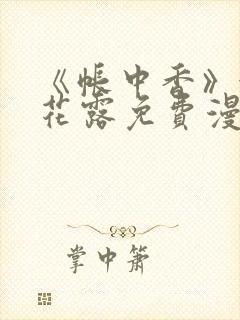 《帐中香》
花露免费漫
掌中萧